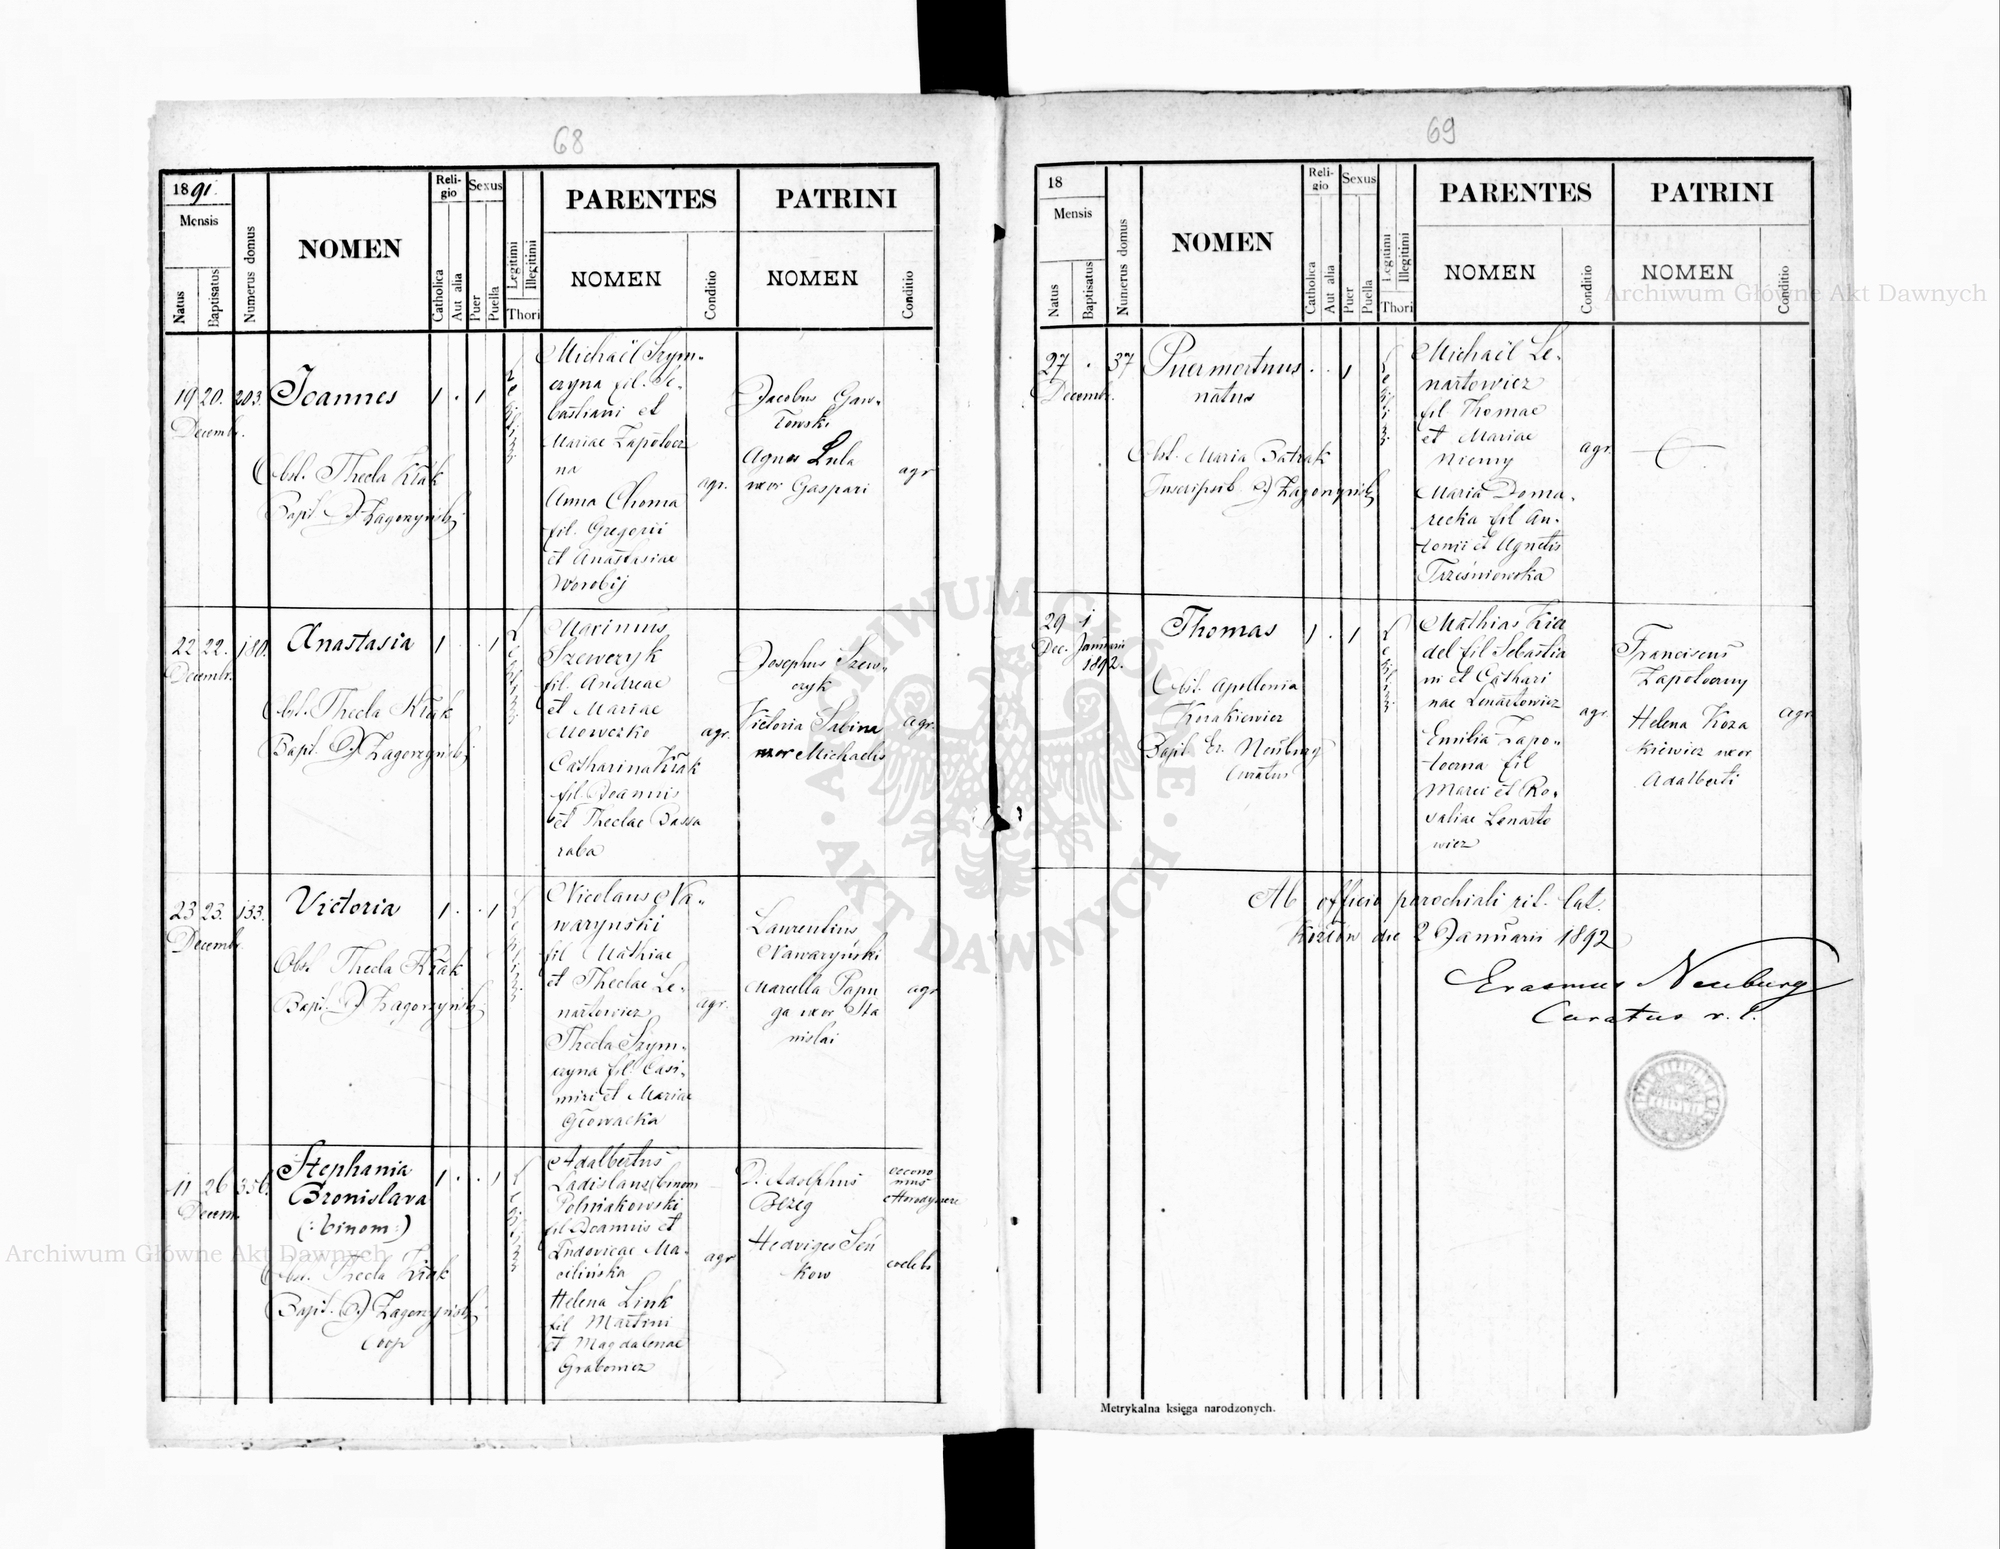 68
1891.
Mensis
Natus
Baptisatus
Numerus domus
NOMEN
Reli-
gio
Catholica
Aut alia
Sexus
Puer
Puella
Legitimi
Illegitimi
Thori
PARENTES
NOMEN
Conditio
PATRINI
NOMEN
Conditio
19 20. 203.
Decemb.
Joannes
Obst. Thecla Kłak
Bapt. Zagorzyński
1 . 1
Michaël Szym-
czyna fil. Se-
bastiani et
Mariae Zapotocz
na
Anna Choma
fil. Gregorii
et Anastasiae
Worobij
agr.
Jacobus Gaw-
łowski
Agnes Lula
uxor Gaspari
agr
22 22. 180.
Decemb.
Anastasia
Obst. Thecla Kłak
Bapt. Zagorzyński
1 . . 1
Marinus
Szewczyk
fil. Andreae
et Mariae
Mowczko
Catharina Kłak
fil. Joannis
et Theclae Bassa
raba
agr.
Josephus Szew-
czyk
Victoria Sabina
uxor Michaelis
agr.
23 23. 133.
Decemb.
Victoria
Obst Thecla Kłak
Bapt. Zagorzyński
1 . . 1
Nicolaus Na-
warynski
fil Mathiae
et Theclae Le-
nartowicz
Thecla Szym-
czyna fil. Casi-
miri et Mariae
Głowacka
agr.
Laurentius
Nawaryński
Marcella Papu
ga uxor Sta
nislai
agr
11 26 356.
Decem.
Stephania
Bronislava
(: binom :)
Obst. Thecla Kłak
Bapt. Zagorzyński
Coop
1 . . 1
Adalbertus
Ladislaus (binom
Polniakowski
fil Joannis et
Ludovicae Ma-
cilińska
Helena Link
fil Martini
et Magdalenae
agr
D. Adolphus
Bezeg
Hedviges Señ
kow
oecono
mus
coelebs
69
18
Mensis
Natus
Baptisatus
Numerus domus
NOMEN
Reli-
gio
Catholica
Aut alia
Sexus
Puer
Puella
Legitimi
Illegitimi
Thori
PARENTES
NOMEN
Conditio
PATRINI
NOMEN
Conditio
27 . 37
Decemb.
Puer mortuus
natus
Obst. Maria Batrak
Inscripsit Zagorzyński
. . 1
Michaël Le-
nartowicz
fil Thomae
et Mariae
Niemy
Maria Doma-
recka fil An-
tonii et Agnetis
Trześniowska
agr.
29 1
Dec. Januarii
1892.
Thomas
Obst. Apollonia
Korakiewicz
Bapt Er. Neuburg
Curatus
1 . 1
Mathias Kra
del fil Sebastia
ni et Cathari
nae Lenartowicz
Emilia Zapo-
toczna fil
Marci et Ro-
saliae Lenarto
wicz
agr.
Franciscus
Zapotoczny
Helena Koza
kiewicz uxor
Adalberti
agr
Ab officio parochiali rit. lat.
Kozłów die 2 Januarii 1892
Erasmus Neuburg
Curatus r. l.
Metrykalna księga narodzonych.
Archiwum Główne Akt Dawnych
Archiwum Główne Akt Dawnych
ARCHIWUM GŁÓWNE
AKT DAWNYCH